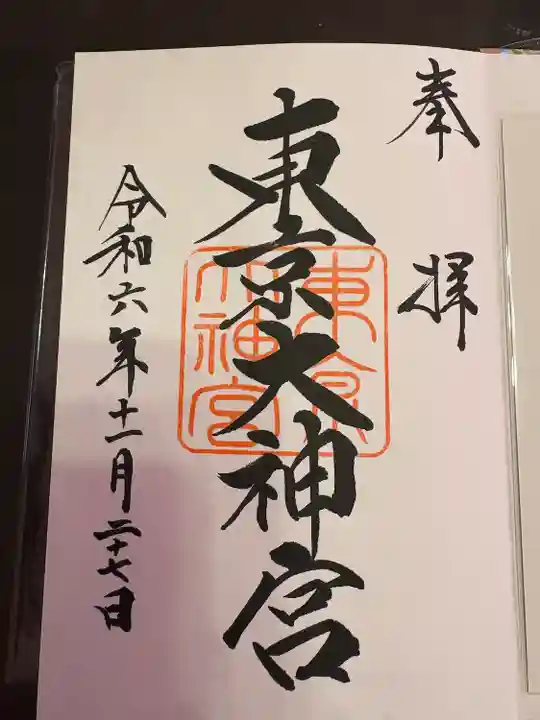 奉拝
東京大神宮
東京大神宮
令和六年十一月二十七日